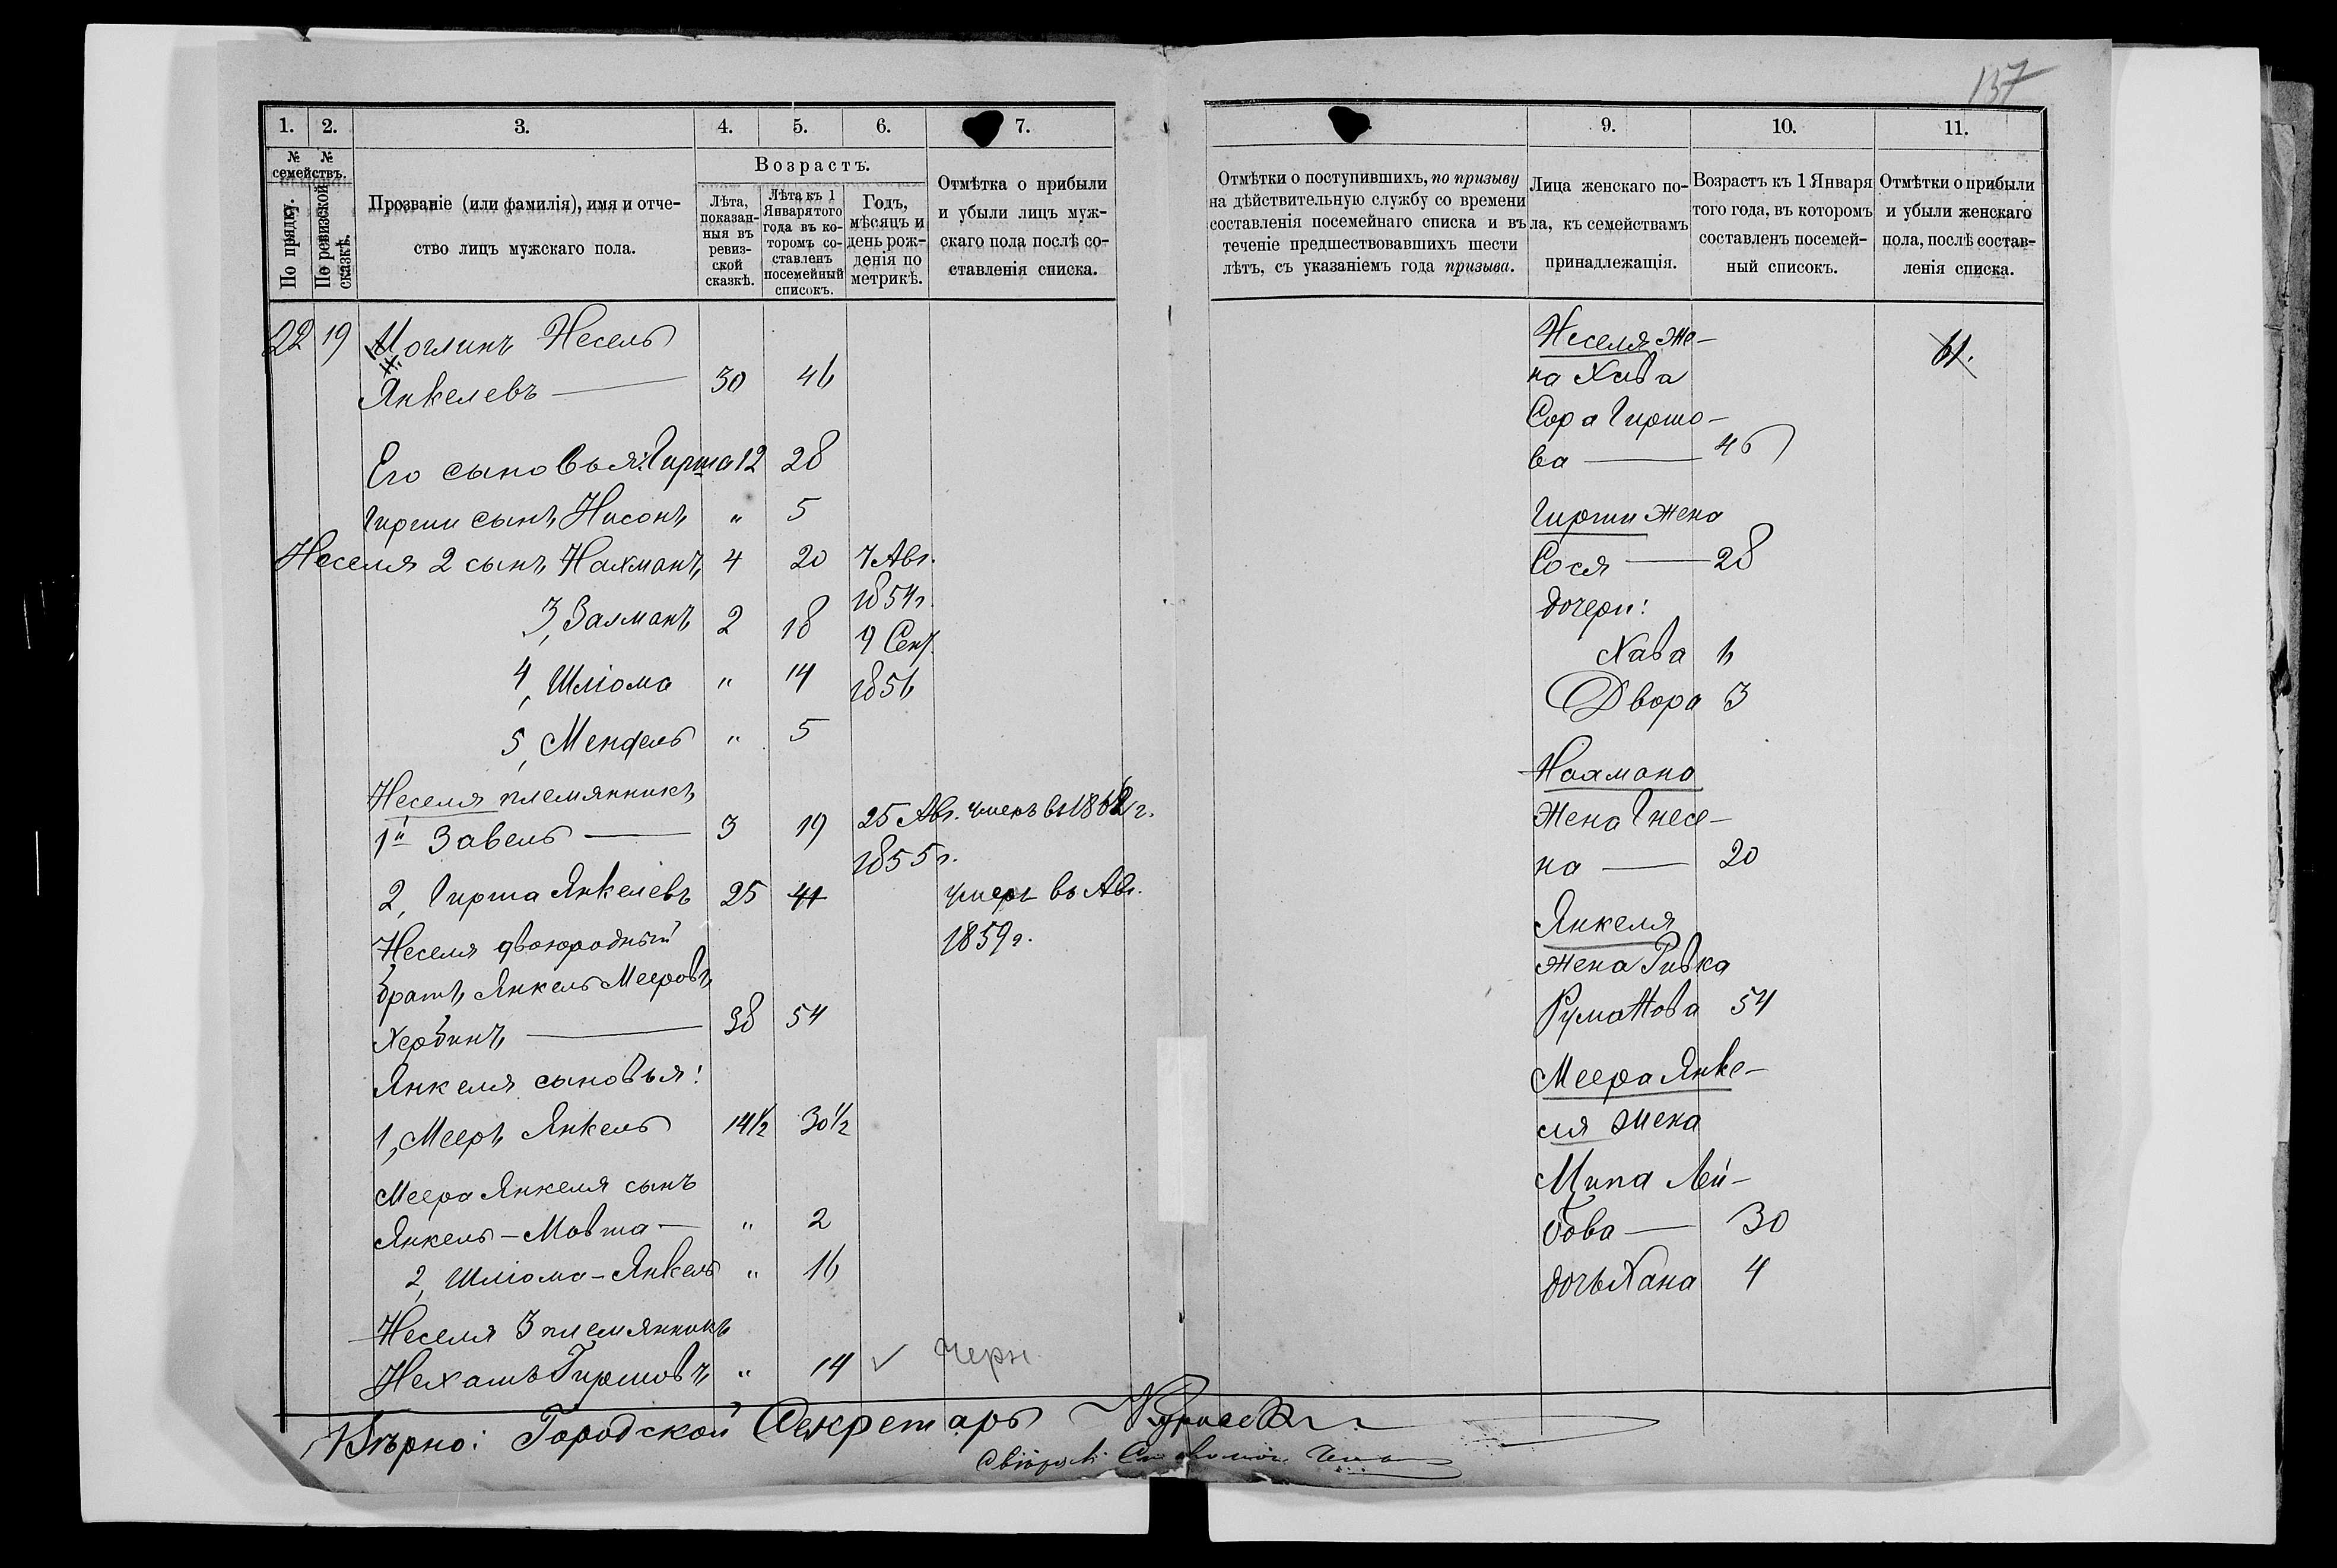 137
1. 2. 3. 4. 5. 6. 7.
№ № семействъ.
По прядку.
По ревизской сказкѣ.
Прозваніе (или фамилія), имя и отче-
ство лицъ мужскаго пола.
Возрастъ.
Лѣта,
показан-
ныя въ
ревиз-
ской
сказкѣ.
Лѣта къ 1
Января того
года въ ко-
торомъ со-
ставленъ
посемейный
списокъ.
Годъ,
мѣсяцъ и
день рож-
денія по
метрикѣ.
Отмѣтка о прибыли
и убыли лицъ муж-
скаго пола послѣ со-
ставленія списка.
22 19 Моглинъ Несель
Янкелевъ — 30 46
Его сыновья: Гирша 12 28
Гирши сынъ Нисонъ „ 5
Неселя 2 сынъ Нахманъ 4 20 7 Авг.
1854 г.
3, Залманъ 2 18 9 Сент.
4, Шліома „ 14 1856
5, Мендель „ 5
Неселя племянникъ
1й Завель — 3 19 25 Авг. умеръ въ 1862 г.
1855 г.
2, Гирша Янкелевъ 25 41 умеръ въ Авг.
1859 г.
Неселя двоюродный
братъ Янкель Мееровъ
Хербинъ — 38 54
Янкеля сыновья:
1, Мееръ Янкель 14½ 30½
Меера Янкеля сынъ
Янкель-Мовша — „ 2
2, Шліома-Янкель „ 16
Неселя 3 племянникъ
Нехамъ Гиршовъ „ 14 ✓ Черн
9. 10. 11.
Отмѣтки о поступившихъ, по призыву
на дѣйствительную службу со времени
составленія посемейнаго списка и въ
теченіе предшествовавшихъ шести
лѣтъ, съ указаніемъ года призыва.
Лица женскаго по-
ла, къ семействамъ
принадлежащія.
Возрастъ къ 1 Января
того года, въ которомъ
составленъ посемей-
ный списокъ.
Отмѣтки о прибыли
и убыли женскаго
пола, послѣ состав-
ленія списка.
Неселя же-
на Хава
Сора Гиршо-
ва — 46
Гирши жена
Сося — 28
дочери:
Хава 6
Двора 3
Нахмана
жена Гнесе-
на — 20
Янкеля
жена Ривка
54
Меера Янке-
ля жена
Мина Лей-
бова — 30
дочь Хана 4
Вѣрно: Городской Секретарь